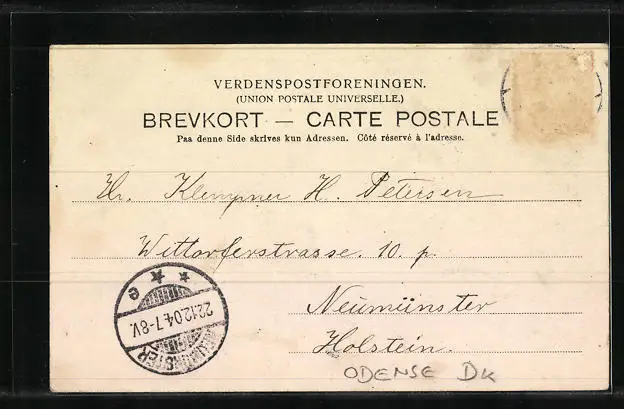 VERDENSPOSTFORENINGEN.
(UNION POSTALE UNIVERSELLE.)
BREVKORT — CARTE POSTALE
Paa denne Side skrives kun Adressen. Côté réservé à l'adresse.
Hr. Klempner H. Petersen
Wittorferstrasse. 10. p.
Neumünster
Holstein.
NEUMÜNSTER
22.12.04.7-8V.
e
ODENSE DK